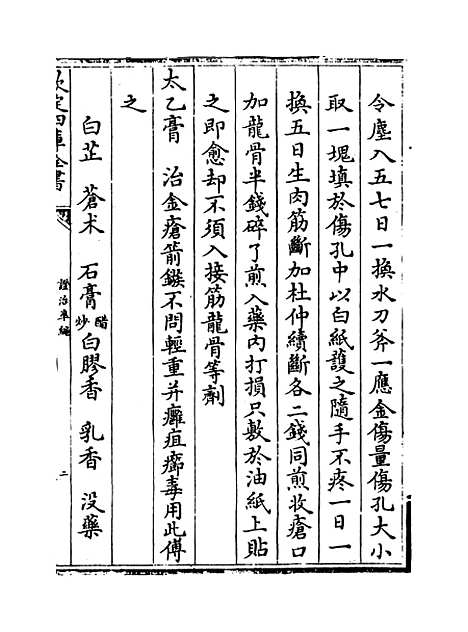 令塵入五七日一換水刀斧一應金傷量傷孔大小
取一塊填於傷孔中以白紙護之隨手不疼一日一
換五日生肉筋斷加杜仲續斷各二錢同煎收瘡口
加龍骨半錢碎了煎入藥內打損只敷於油紙上貼
之即愈却不須入接筋龍骨等劑
太乙膏　治金瘡箭鏃不問輕重并癰疽癤毒用此傅
之
白芷　蒼术　石膏醋炒　白膠香　乳香　没藥
欽定四庫全書
證治準繩
二